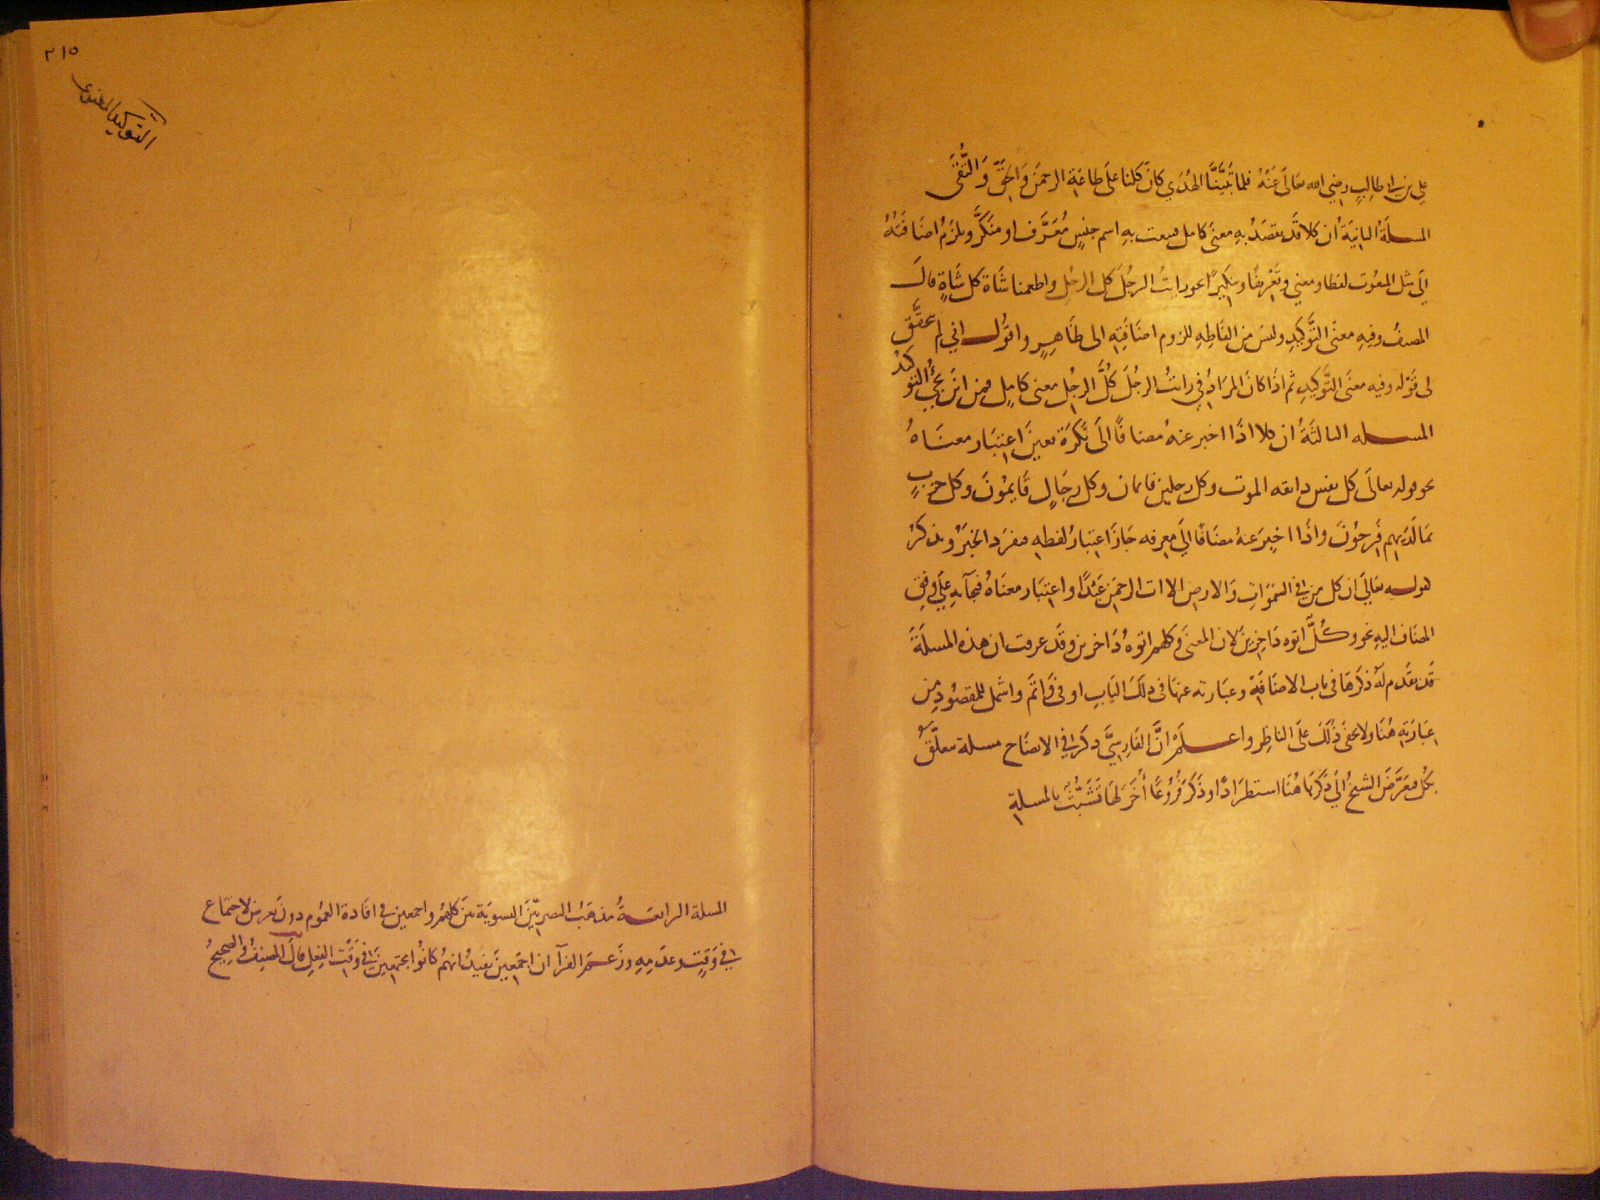 علي بن ابي طالب رضي الله تعالى عنه فلما تبيَّنَّا الهُدَي كان كلنا على طاعة الرحمن والحق والتُّقَى
المسلة الثانية ان كلا قد يقصد به معنى كامل فينعت به اسم جنس مُعَرَّف او منكَّر ويلزم اضافته
الى مثل المنعوت لفظا ومعنى وتعريفا وتنكيرا نحو رايت الرجلَ كل الرجل واطعمنا شاة كل شاةٍ قال
المصنف وفيه معنى التَّوكيدِ وليس من الفاظه للزوم اضافته الى ظاهرٍ واقول اني لم يتحقَّق
لى قوله وفيه معنى التَّوكيد ثم اذا كان المراد في رايتُ الرجلَ كُلَّ الرجل معنى كامل فمن اين يجئ التوكيد
المسله الثالثة ان كلا اذا اخبر عنه مضافًا الى نكرة تعين اعتبار معناهُ
نحو قوله تعالى كل نفس ذائقه الموت وكل رجلين قائمان وكل رجالٍ قايمون وكل حزبٍ
بما لديهم فرحون واذا اخبر عنه مضافًا الى معرفه جاز اعتبار لفظه فيفرد الخبر ويذكر
كقوله تعالى ان كل من في السموات والارض الا ات الرحمن عَبْدًا واعتبار معناه فيجآ به علي وفق
المضاف اليه نحو وكُلٌّ اتوه داخرين لان المعنى وكلهم اتوه داخرين وقد عرفت ان هذه المسلَةَ
قد تقدم له ذكرها في باب الاضافة وعبارته عنها في ذلك الباب اوفى واتم واشمل للمقصود من
عبارته هنا ولا يخفى ذلك على الناظر واعلم انَّ الفارسيَّ ذكر في الايضاح مسلة معلَّقة
بكل فتعرَّض الشيخ الى ذكرها هُنا استطرادًا وذكر فُرُوعًا أُخَرَ لها تَشَبُّث بالمسلة
٢١٥
التوكيد المعنوى
المسلة الرابعة مذهب البصريّين التسوية بين كلهم واجمعين في افادة العموم دون تعرض لاجتماع
في وقت وعدمه وزعم الفرآ ان اجمعين يفيد انهم كانوا مجتمعين في وقت الفعل قال المصنف والصحيح